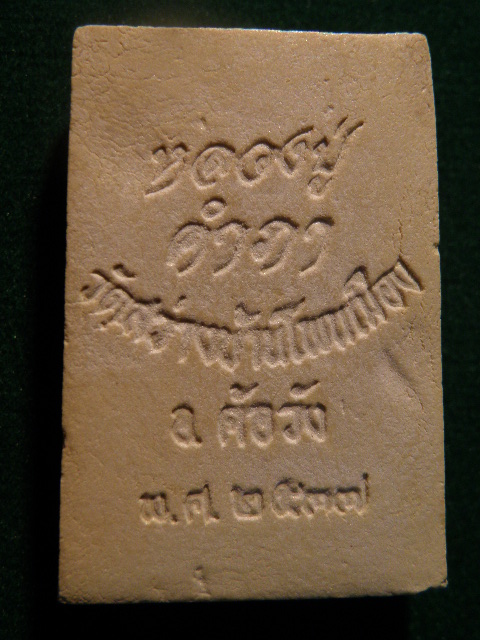 หลวงปู่
วัดสว่างบ้านโพนเมือง
อ. ค้อวัง
พ.ศ. ๒๕๓๗